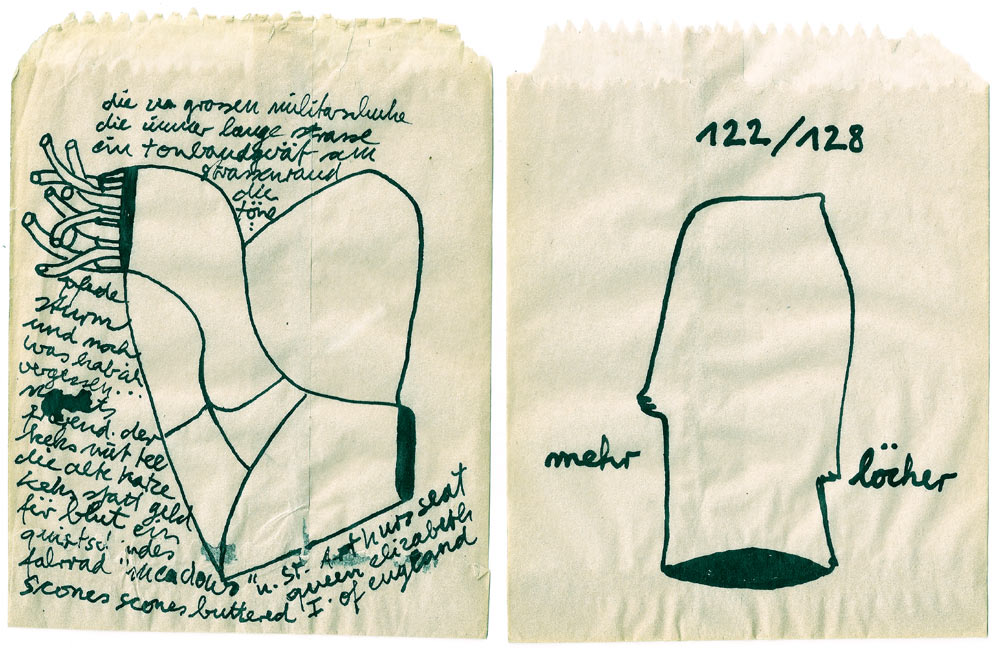 die zu grossen militärschuhe
die immer lange strasse
ein tonbandgerät am
strassenrand
die
töne
:
pferde
sturm
und noch
was hab ich
vergessen...
frierend. der
keks mit tee
die alte katze
keks statt geld
für blut ein
quietschendes
fahrrad "meadows" u. st. Arthurs seat
queen elizabeth
scones scones buttered I. of england
122/128
mehr
löcher